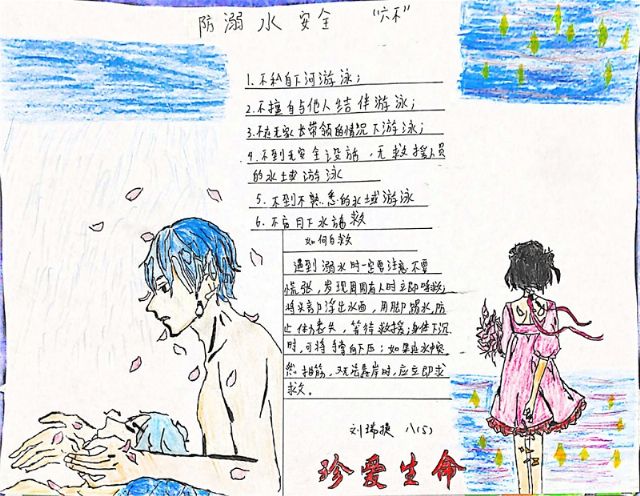 防溺水安全 "六不"
1.不私自下河游泳；
2.不擅自与他人结伴游泳；
3.不在无家长带领的情况下游泳；
4.不到无安全设施，无救援人员
的水域游泳
5.不到不熟悉的水域游泳
6.不盲目下水施救
如何自救
遇到溺水时一定要注意不要
慌张，发现周围有人时立即呼救；
将头部浮出水面，用脚踢水，防
止体力丧失，等待救援；身体下沉
时，可将手掌向下压；如果在水中突
然抽筋，又无法靠岸时，应立即求
救。
刘瑞捷 八(5)
珍爱生命